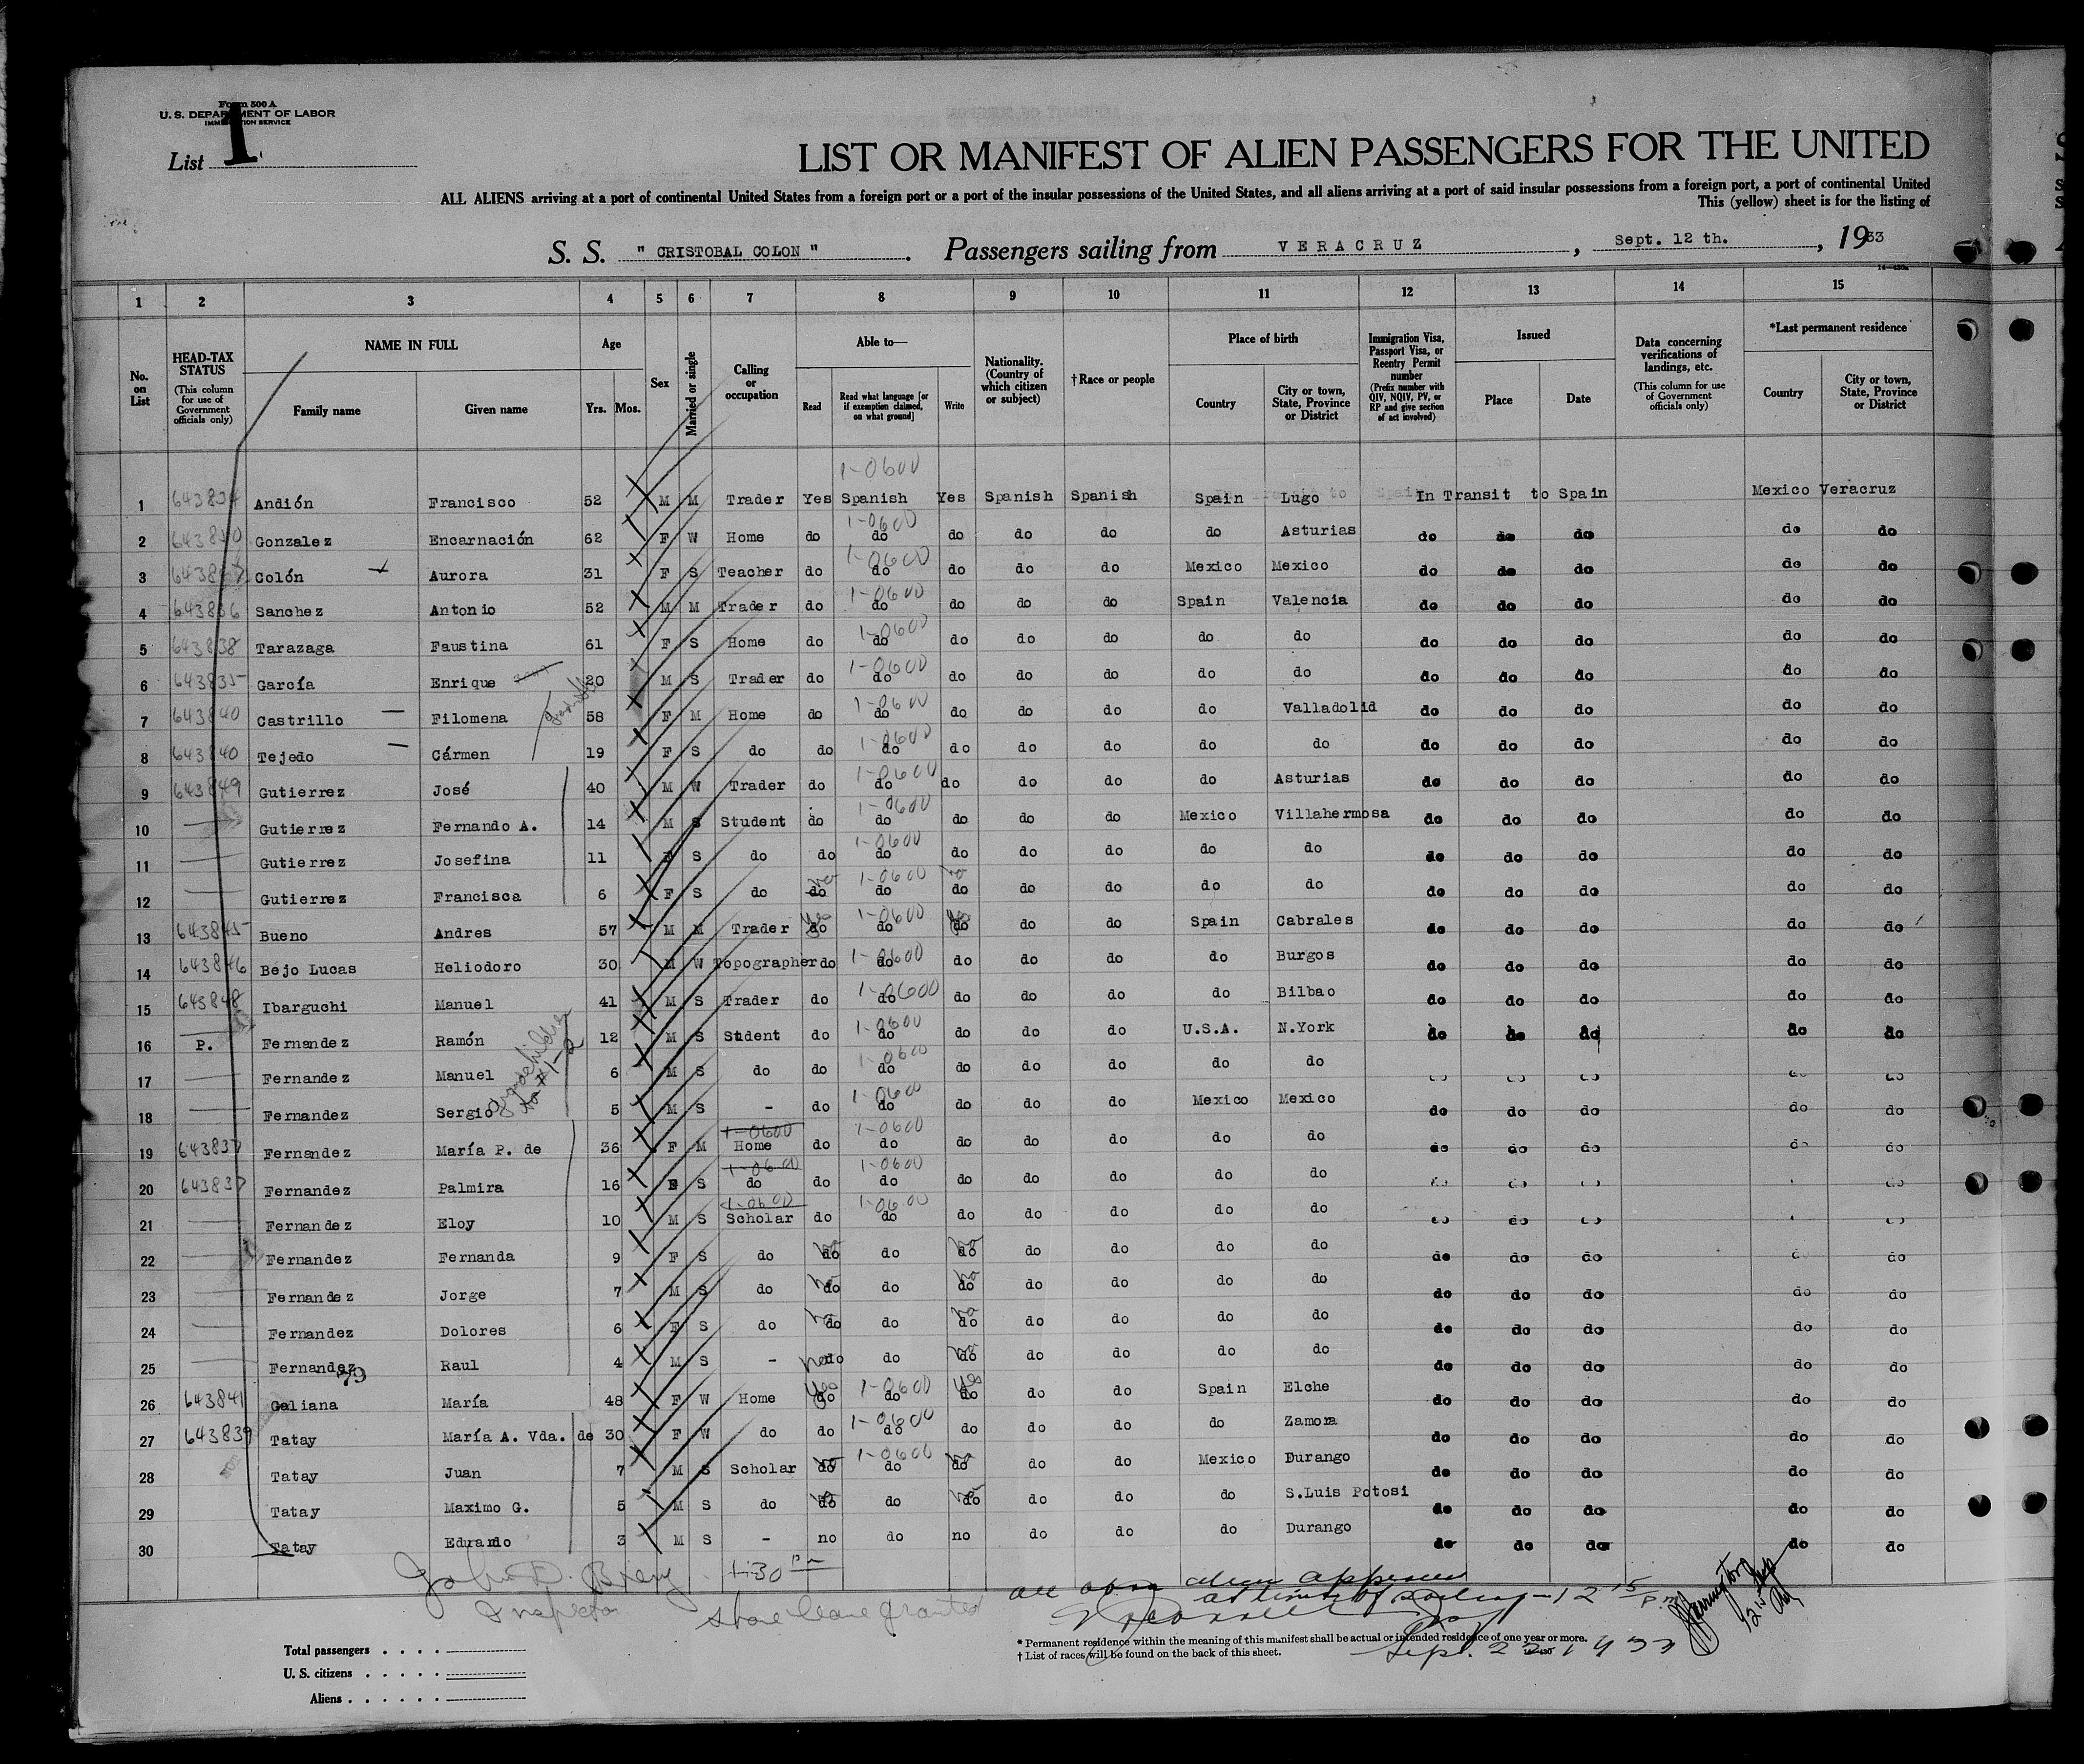 Form 500 A
U. S. DEPARTMENT OF LABOR
IMMIGRATION SERVICE
List 1
LIST OR MANIFEST OF ALIEN PASSENGERS FOR THE UNITED
ALL ALIENS arriving at a port of continental United States from a foreign port or a port of the insular possessions of the United States, and all aliens arriving at a port of said insular possessions from a foreign port, a port of continental United
This (yellow) sheet is for the listing of
S. S. " CRISTOBAL COLON " . Passengers sailing from VERACRUZ , Sept. 12 th. , 1933
1 2 3 4 5 6 7 8 9 10 11 12 13 14 15
No. on List
HEAD-TAX STATUS (This column for use of Government officials only)
NAME IN FULL Family name Given name
Age Yrs. Mos.
Sex
Married or single
Calling or occupation
Able to— Read Read what language [or if exemption claimed, on what ground] Write
Nationality. (Country of which citizen or subject)
†Race or people
Place of birth Country City or town, State, Province or District
Immigration Visa, Passport Visa, or Reentry Permit number (Prefix number with QIV, NQIV, PV, or RP and give section of act involved)
Issued Place Date
Data concerning verifications of landings, etc. (This column for use of Government officials only)
*Last permanent residence Country City or town, State, Province or District
1-0600
1 Andión Francisco 52 M M Trader Yes Spanish Yes Spanish Spanish Spain Lugo In Transit to Spain Mexico Veracruz
2 Gonzalez Encarnación 62 F W Home do 1-0600 do do do do do Asturias do do do do do
3 Colón Aurora 31 F S Teacher do 1-0600 do do do do Mexico Mexico do do do do do
4 643836 Sanchez Antonio 52 M M Trader do 1-0600 do do do do Spain Valencia do do do do do
5 643838 Tarazaga Faustina 61 F S Home do 1-0600 do do do do do do do do do do do
6 643835 García Enrique 20 M S Trader do 1-0600 do do do do do do do do do do do
7 643840 Castrillo Filomena 58 F M Home do 1-0600 do do do do do Valladolid do do do do do
8 643840 Tejedo Cármen 19 F S do do 1-0600 do do do do do do do do do do do
9 643849 Gutierrez José 40 M W Trader do 1-0600 do do do do do Asturias do do do do do
10 Gutierrez Fernando A. 14 M S Student do 1-0600 do do do do Mexico Villahermosa do do do do do
11 Gutierrez Josefina 11 F S do do 1-0600 do do do do do do do do do do do
12 Gutierrez Francisca 6 F S do do 1-0600 do do do do do do do do do do do
13 643845 Bueno Andres 57 M M Trader Yes do 1-0600 do Yes do do do Spain Cabrales do do do do do
14 643846 Bejo Lucas Heliodoro 30 M W Topographer do 1-0600 do do do do do Burgos do do do do do
15 643848 Ibarguchi Manuel 41 M S Trader do 1-0600 do do do do do Bilbao do do do do do
16 P. Fernandez Ramón 12 M S Student do 1-0600 do do do do U.S.A. N.York do do do do do
17 Fernandez Manuel 6 M S do do 1-0600 do do do do do do do do do do do
18 Fernandez Sergio 5 M S - do 1-0600 do do do do Mexico Mexico do do do do do
19 643837 Fernandez María P. de 36 F M 1-0600 Home do 1-0600 do do do do do do do do do do do
20 643837 Fernandez Palmira 16 F S 1-0600 do do 1-0600 do do do do do do do do do do
21 Fernandez Eloy 10 M S 1-0600 Scholar do 1-0600 do do do do do do do do do do
22 Fernandez Fernanda 9 F S do no do do no do do do do do do do do do do
23 Fernandez Jorge 7 M S do no do do no do do do do do do do do do do
24 Fernandez Dolores 6 F S do no do do no do do do do do do do do do do
25 Fernandez Raul 4 M S - no do do no do do do do do do do do do do
26 643841 Galiana María 48 F W Home Yes do 1-0600 do Yes do do do Spain Elche do do do do do
27 643839 Tatay María A. Vda. de 30 F W do do 1-0600 do do do do do Zamora do do do do do
28 Tatay Juan 7 M S Scholar no do 1-0600 do no do do do Mexico Durango do do do do do
29 Tatay Maximo G. 5 M S do no do do no do do do do S.Luis Potosi do do do do do
30 Tatay Eduardo 3 M S - no do no do do do Durango do do do do do
John D.
Inspector
1-30 pm
Shore leave granted
all above alien
at time of sailing - 12 15 p.m.
Sept. 22 1933
Total passengers . . . .
U. S. citizens . . . . .
Aliens . . . . . .
* Permanent residence within the meaning of this manifest shall be actual or intended residence of one year or more.
† List of races will be found on the back of this sheet.